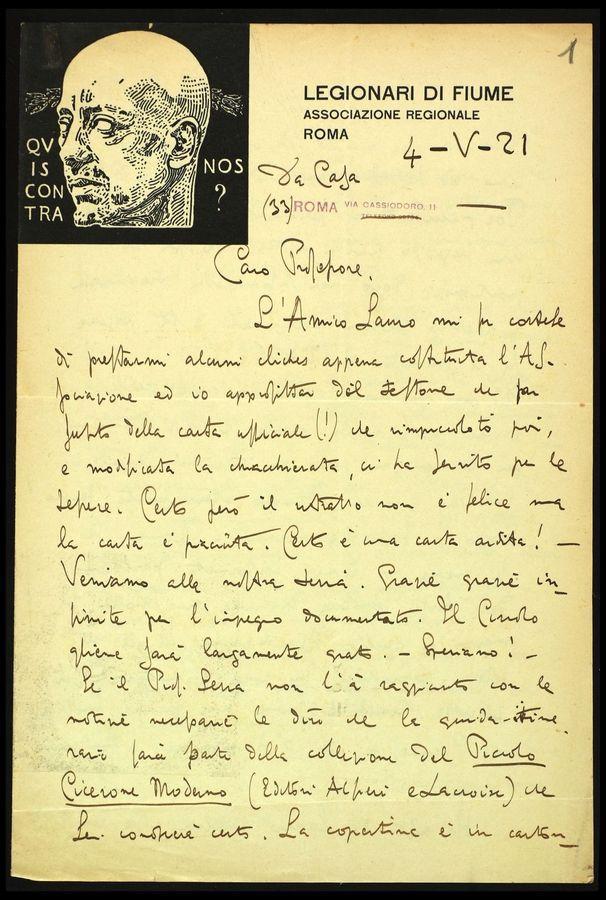 1
LEGIONARI DI FIUME
ASSOCIAZIONE REGIONALE
ROMA
4-V-21
QV
IS
CON
TRA
NOS
?
Da Casa
(33) ROMA VIA CASSIODORO, 11
Caro Professore.
L'Amico Lauro mi fu cortese
di prestarmi alcuni clichés appena costituita l'As-
sociazione ed io approfittai del testone per far
subito della carta ufficiale (!) che rimpicciolito poi,
e modificata la chiacchierata, ci ha servito per le
tessere. Certo però il ritratto non è felice ma
la carta è piaciuta. Certo è una carta ardita! —
Veniamo alla nostra. Grazie grazie in-
finite per l'impegno documentato. Il
gliene sarà largamente grato. — Speriamo! —
Se il Prof. non l'à ragguagliato con le
notizie necessarie le dirò che la guida-itine
rario farà parte della collezione del Piccolo
Cicerone Moderno (Editori Alfieri e Lacroix) che
Lei conoscerà certo. La copertina è in carton-